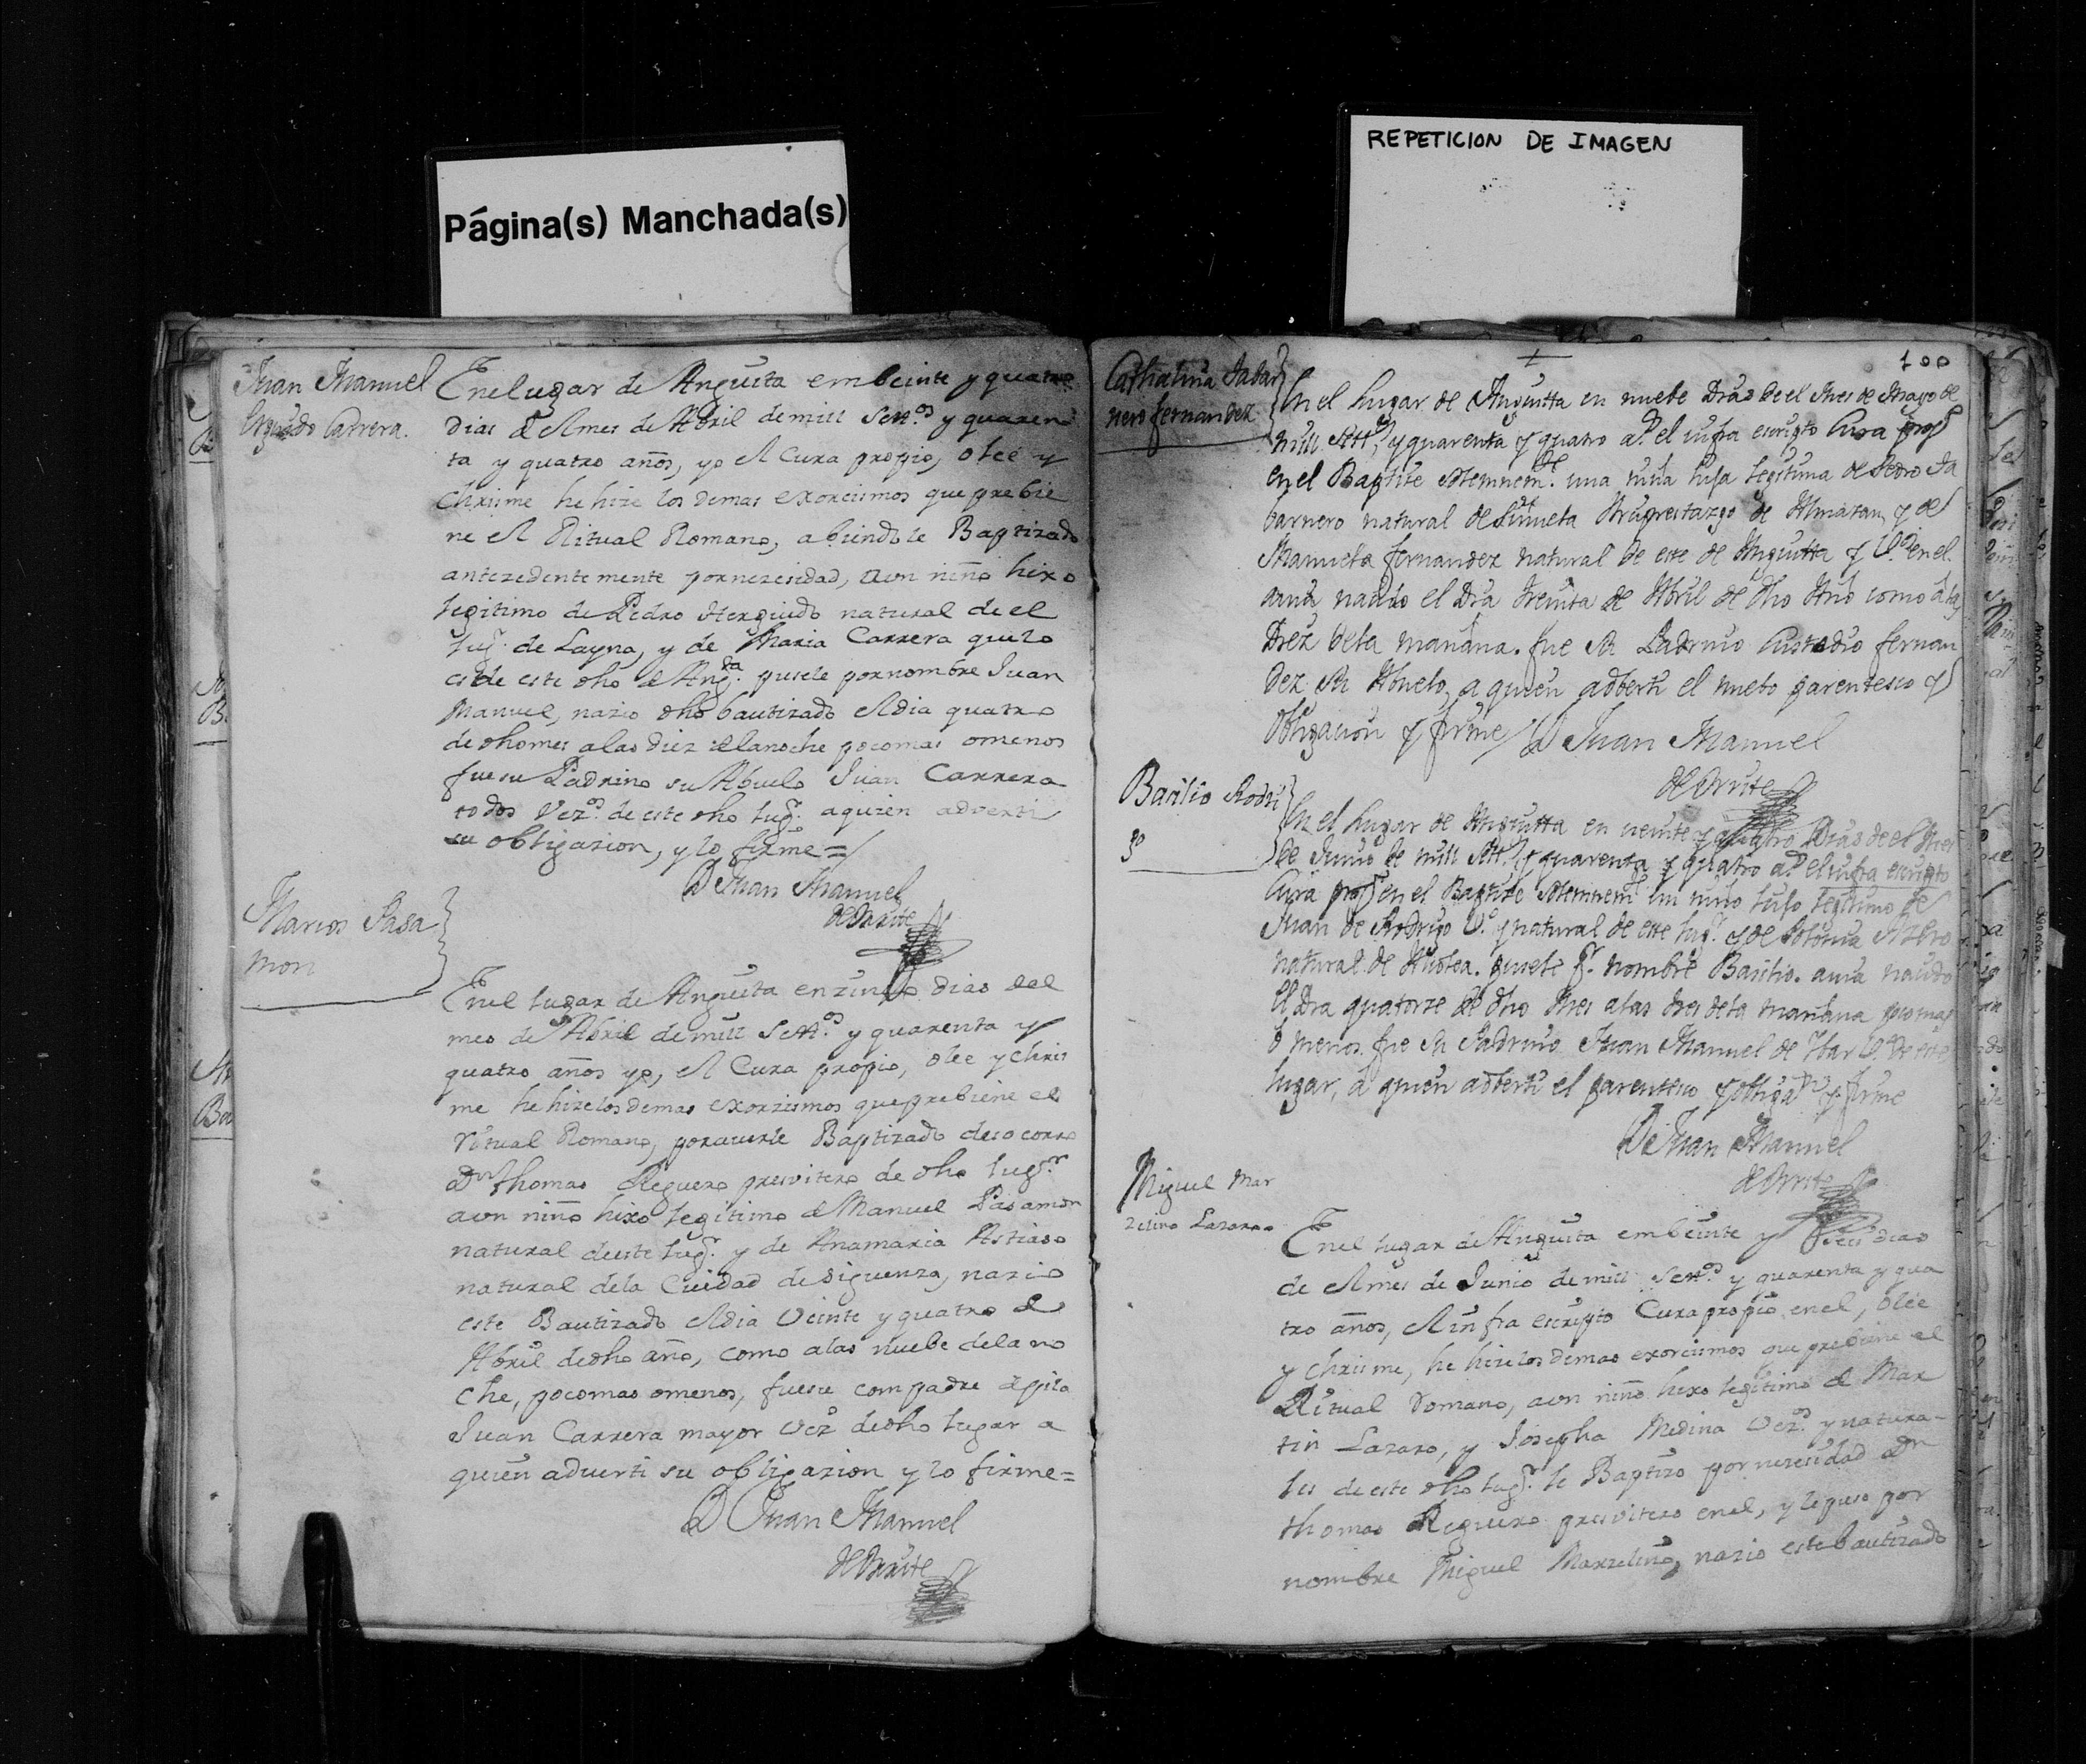 Página(s) Manchada(s)
REPETICION DE IMAGEN
Juan Manuel
Carrera.
En el lugar de Anguita em beinte y quatro
dias del mes de Abril de mill Settos y quaren
ta y quatro años, yo el Cura propio, olee y
Chrisme he hize los demas exorcismos que prebie
ne el Ritual Romano, abiendole Baptizado
antezedentemente por nezesidad, a un niño hixo
legitimo de Pedro Herguido natural de el
lugr. de Layna, y de Maria Carrera que lo
es de este dho de Angta. pusele por nombre Juan
Manuel, nazio dho bautizado el dia quatro
de dho mes a las diez de la noche poco mas omenos
fue su Padrino su Abuelo Juan Carrera
todos Vezos. de este dho lugr. a quien adverti
su obligazion, y lo firme=
D Juan Manuel
de Oruste
Marcos Pasa
mon
En el lugar de Anguita en zinco dias del
mes de Abril de mill Settos. y quarenta y
quatro años yo, el Cura propio, olee y chris
me he hize los demas exorzismos que prebiene el
Ritual Romano, por averle Baptizado de socorro
Dn thomas Reguero presvitero de dho lugr.
a un niño hixo legitimo de Manuel Pasamon
natural de este lugr. y de Anamaria Astiaso
natural de la Ciudad de Siguenza, nazio
este Bautizado el dia Veinte y quatro de
Abril de dho año, como a las nuebe de la no
che, poco mas omenos, fue su compadre de pila
Juan Carrera mayor Vezo de dho lugar a
quien adverti su obligazion y lo firme=
D Juan Manuel
de Oruste
100
Cathalina Tabar
nero fernandez
En el Lugar de Anguitta en nuebe Dias de el Mes de Mayo de
mill Settos. y quarenta y quatro as. el infra escripto Cura propo
en el Baptize solemnemte. una niña hija legitima de Pedro Ta
barnero natural de Arziprestazgo de Almazan, y de
Manuela fernandez natural de este de Anguitta y Vos. en el.
avia nazido el Dia treinta de Abril de dho Año como a las
Diez de la mañana. fue su Padrino Custodio fernan
dez su Abuelo, a quien adberti el nuebo parentesco y
obligacion y firme D Juan Manuel
de Oruste
Basilio Rodri
go
En el Lugar de Anguitta en veinte y quatro Dias de el Mes
de Junio de mill Settos. y quarenta y quatro as. el infra escripto
Cura propo en el Baptize solemnemte un niño hijo legitimo de
Juan de Rodrigo Vo. y natural de este lugr. y de
natural de pusele pr. nombre Basilio. avia nacido
El Dia quatorze de dho Mes a las tres de la mañana poco mas
o menos. fue su Padrino Juan Manuel de Vo. de este
lugar, a quien adberti el parentesco y obligan y firme
D Juan Manuel
de Oruste
Miguel Mar
zelino Lazaro
En el lugar de Anguita em beinte y seis dias
de el mes de Junio de mill Settos. y quarenta y qua
tro años, el infra escripto Cura propio en el, olee
y chrisme, he hize los demas exorcismos que prebiene el
Ritual Romano, a un niño hixo legitimo de Mar
tin Lazaro, y Josepha Medina Vezos. y natura-
les de este dho lugr. le Baptizo por nezesidad Dn
thomas Reguero presvitero en el, y le puso por
nombre Miguel Marzelino, nazio este bautizado